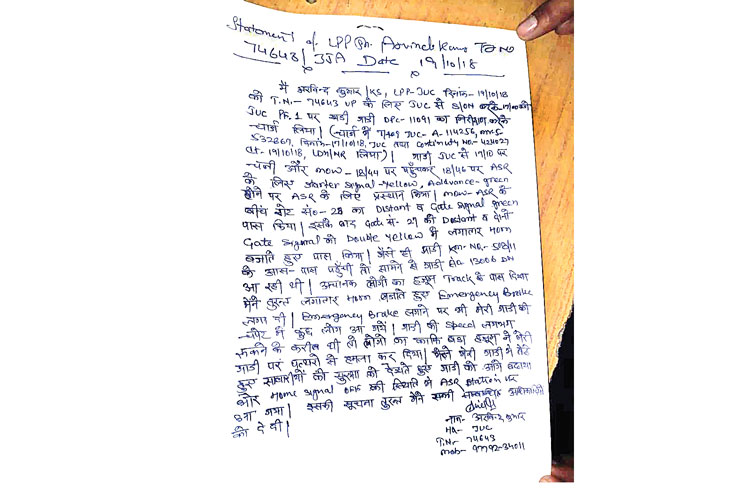 Statement of LPP Sh. Arvind Kumar T.No
74643/BJA Date 19/10/18
मैं अरविन्द कुमार/KS, LPP-JUC दिनांक-19/10/18
को T.N:- 74643 UP के लिए JUC से S/ON करके
JUC Pf. 1 पर खडी गाडी DPC-11091 का निरिक्षण करके
चार्ज लिया। (चार्ज में T/409 JUC-A-114256, and
532869, दिनांक-19/10/18, JUC तथा Continuity No.-
dt-19/10/18, लिया)। गाडी JUC से 17/10 पर
चली और mow-18/44 पर पहुँचकर 18/46 पर ASR
के लिए starter signal-yellow, Advance-green
होने पर ASR के लिए प्रस्थान किया। mow-ASR के
बीच गेट सं०-28 का Distant व Gate signal green
पास किया। इसके बाद Gate सं-27 की Distant व दोनों
Gate signal को Double yellow में लगातार Horn
बजाते हुए पास किया। जैसे ही गाडी Km-No.-508/11
के आस-पास पहुँची तो सामने से गाडी सं० 13006 DN
आ रही थी। अचानक लोगों का हजूम Track के पास दिखा
मैंने तुरन्त लगातार Horn बजाते हुए Emergency Brake
लगा दी। Emergency Brake लगाने पर भी मेरी गाडी की
चपेट में कुछ लोग आ गये। गाडी की speed लगभग
रूकने के करीब थी तो लोगों का काफि बडा हजूम ने मेरी
गाडी पर पत्थरो से हमला कर दिया। मैंने मेरी गाडी में बैठे
हुए की सुरक्षा को देखते हुए गाडी को आगे बढाया
और Home signal OFF की स्थिति में ASR station पर
आ गया। इसकी सूचना तुरन्त मैंने सभी अधिकारियों
को दे दी।
नाम- अरविन्द कुमार
HQ- JUC
T.No- 74643
mob- 97792-34011